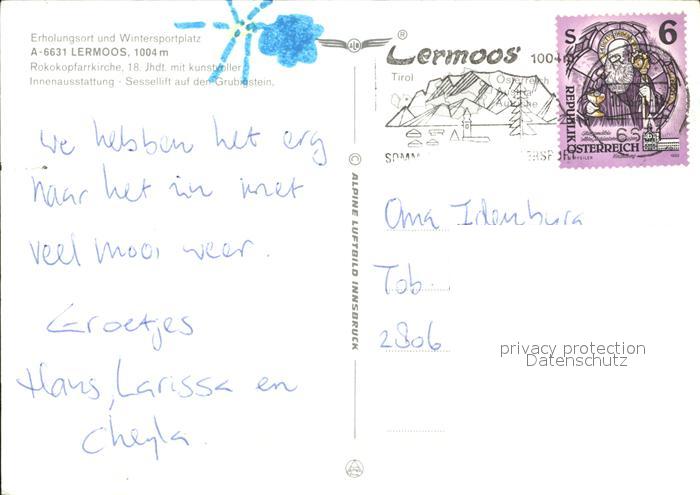 Erholungsort und Wintersportplatz
A-6631 LERMOOS, 1004 m
Rokokopfarrkirche, 18. Jhdt. mit kunstvoller
Innenausstattung - Sessellift auf den Grubigstein.
we hebben het erg
naar het zin met
veel mooi weer.
Groetjes
Hans, Larissa en
Cheyla.
© ALPINE LUFTBILD INNSBRUCK
Lermoos ®
1004 m
Tirol
Österreich
S 6
REPUBLIK
ÖSTERREICH
Oma
Tob.
2806
privacy protection
Datenschutz